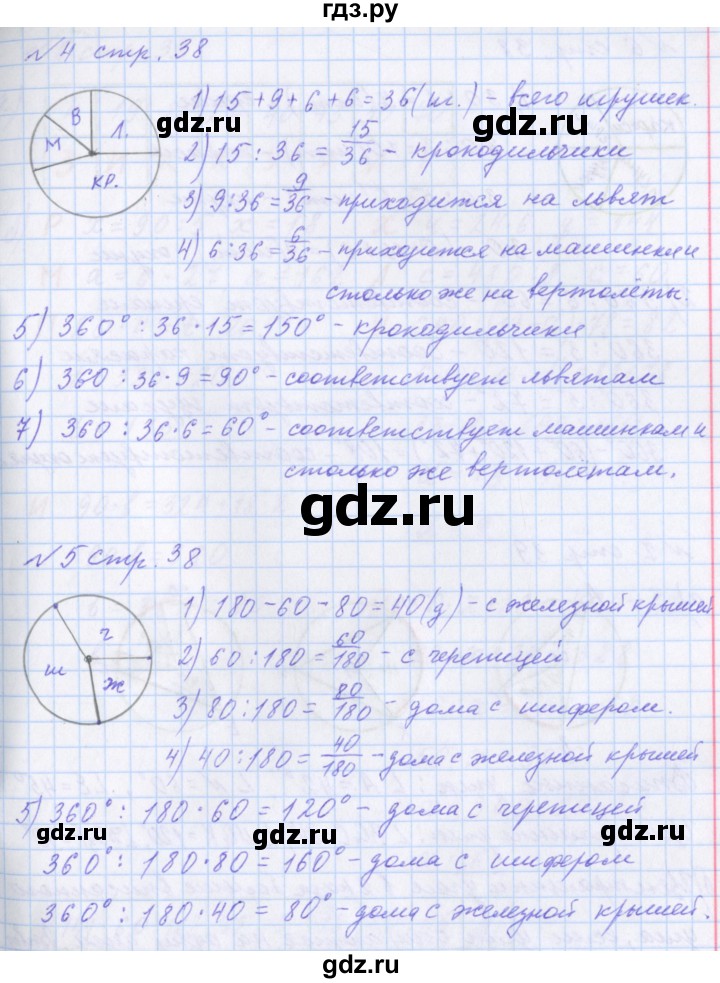 гдз.ру
№4 стр. 38
В
М
Л.
кр.
1) 15 + 9 + 6 + 6 = 36 (иг.) - всего игрушек.
gdz.ru
gdz.ru
2) 15 : 36 = 15/36 - крокодильчики
3) 9:36 = 9/36 - приходится на львят
4) 6 : 36 = 6/36 - приходится на машинки и
столько же на вертолёты.
5) 360° : 36 · 15 = 150° - крокодильчики
6) 360 : 36 · 9 = 90° - соответствует львятам
7) 360 : 36 · 6 = 60° - соответствует машинкам и
столько же вертолётам.
gdz.ru
№5 стр. 38
ш
г
ж
1) 180 - 60 - 80 = 40 (д) - с железной крышей
2) 60 : 180 = 60/180 - с черепицей
3) 80 : 180 = 80/180 - дома с шифером.
4) 40 : 180 = 40/180 - дома с железной крышей
5) 360° : 180 · 60 = 120° - дома с черепицей
gdz.ru
gdz.ru
360° : 180 · 80 = 160° - дома с шифером
360° : 180 · 40 = 80° - дома с железной крышей.
gdz.ru